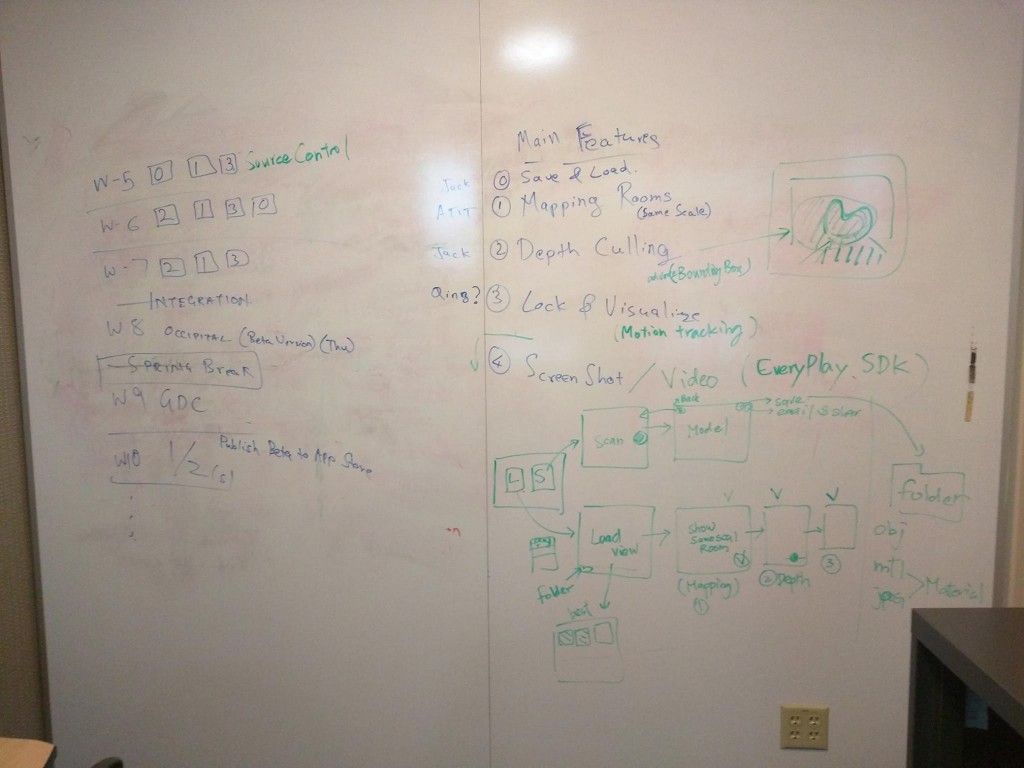 W-5 0 1 3 Source Control
W-6 2 1 3 0
W-7 2 1 3
INTEGRATION
W8 OCCIPITAL (Beta Version) (Thu)
SPRING BREAK
W9 GDC
W10 1/2(s) Publish Beta to App Store
Main Features
0 Save & Load.
Jack
1 Mapping Rooms
(Same Scale)
Jack 2 Depth Culling
(Bounding Box)
Qing? 3 Lock & Visualize
(Motion tracking)
4 Screen Shot / Video (EveryPlay SDK)
Scan
Model
save
email
folder
L S
Load
view
folder
show
Room
(Mapping)
1
2 Depth
3
obj
mtl
jpeg
Material